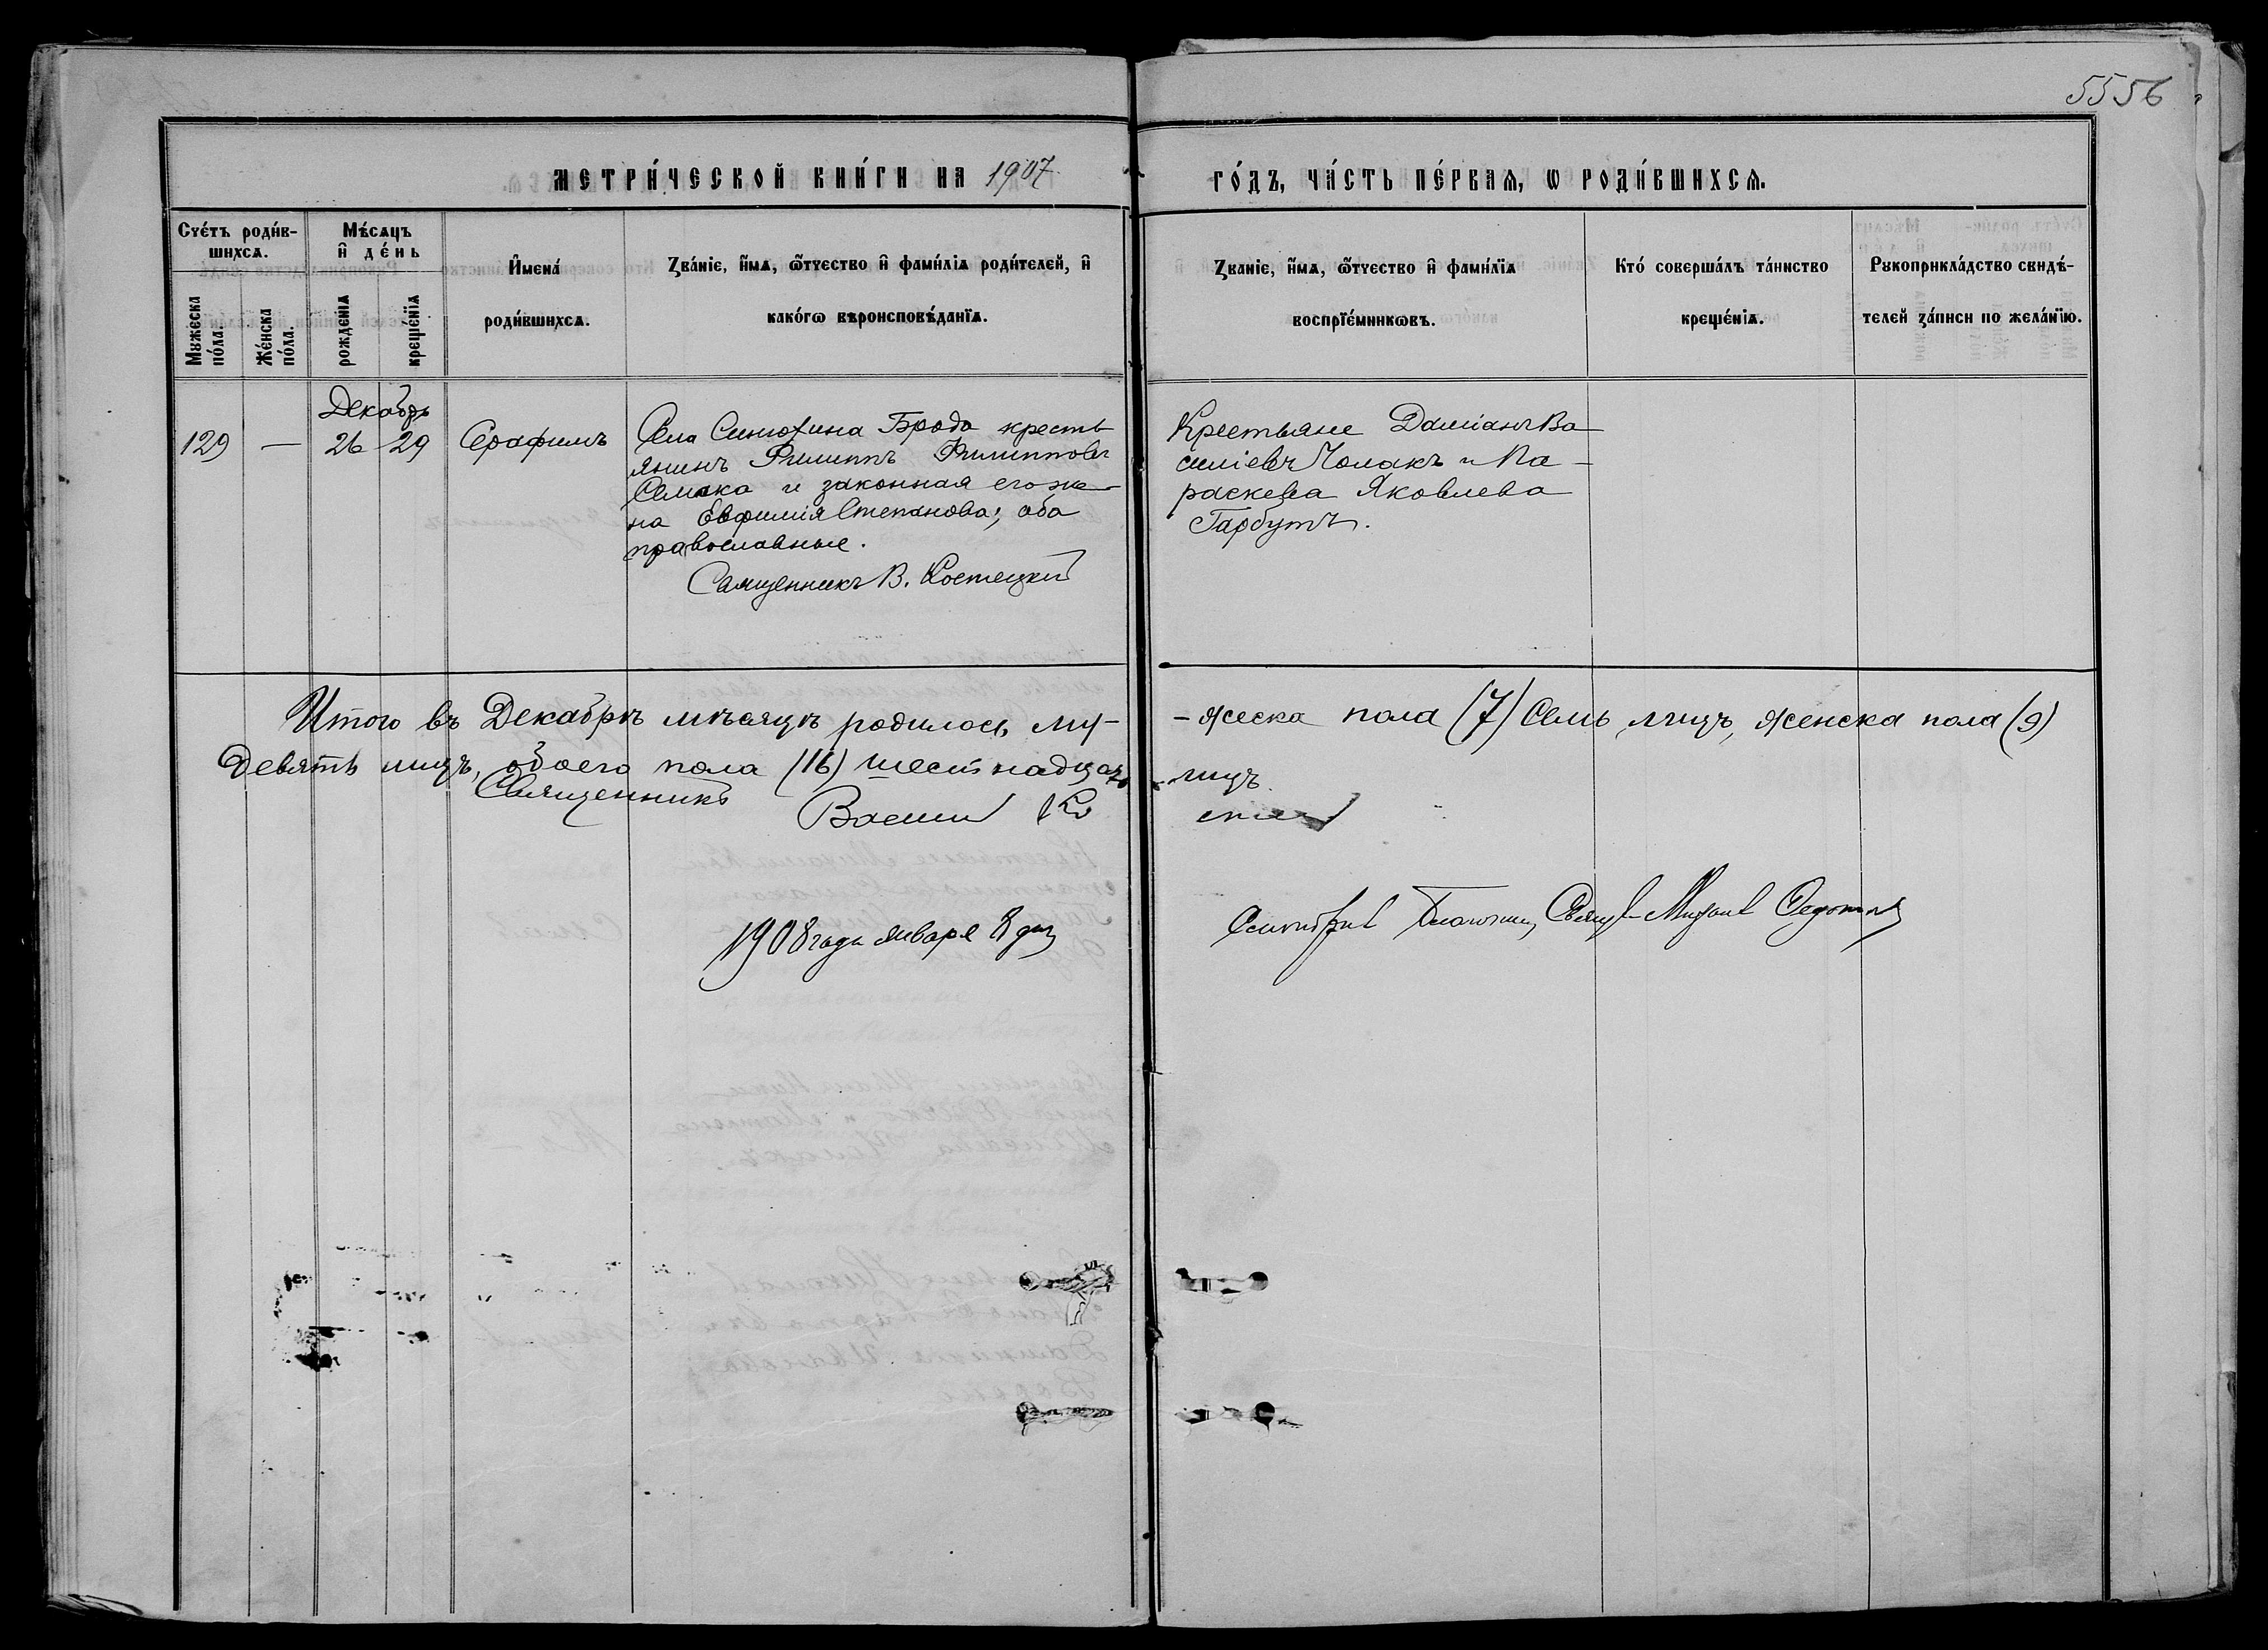 5556
МЕТРИ́ЧЕСКОЙ КНИ́ГИ НА 1907
ГО́ДЪ, ЧА́СТЬ ПЕ́РВАѦ, Ѡ РОДИ́ВШИХСѦ.
Счéтъ роди́в-
шихсѧ.
Мужеска пóла.
Жéнска пóла.
Мѣ́сѧцъ
и҆ дéнь
рождéніѧ
крещéніѧ
И҆мена́
роди́вшихсѧ.
Зва́ніе, и҆́мѧ, ѻ҆́тчество и҆ фами́ліѧ роди́телей, и҆
како́гѡ вѣроисповѣ́даніѧ.
Зва́ніе, и҆́мѧ, ѻ҆́тчество и҆ фами́ліѧ
воспріе́мникѡвъ.
Кто́ соверша́лъ та́инство
креще́ніѧ.
Рукоприкла́дство свидѣ́-
телей за́писи по жела́нію.
Декабрь
129 — 26 29 Серафимъ
Села Синюхина Брода кресть-
янинъ Филиппъ Филипповъ
Семака и законная его же-
на Евфимія Степанова; оба
православные.
Священникъ В. Костецкій
Крестьяне Даміанъ Ва-
силіевъ Чомакъ и Па-
раскева Яковлева
Гарбутъ.
Итого въ Декабрѣ мѣсяцѣ родилось му-
-жеска пола (7) Семь лицъ, женска пола (9)
Девять лицъ, обоего пола (16) шестнадцать
лицъ.
Священникъ
1908 года января 8 дня